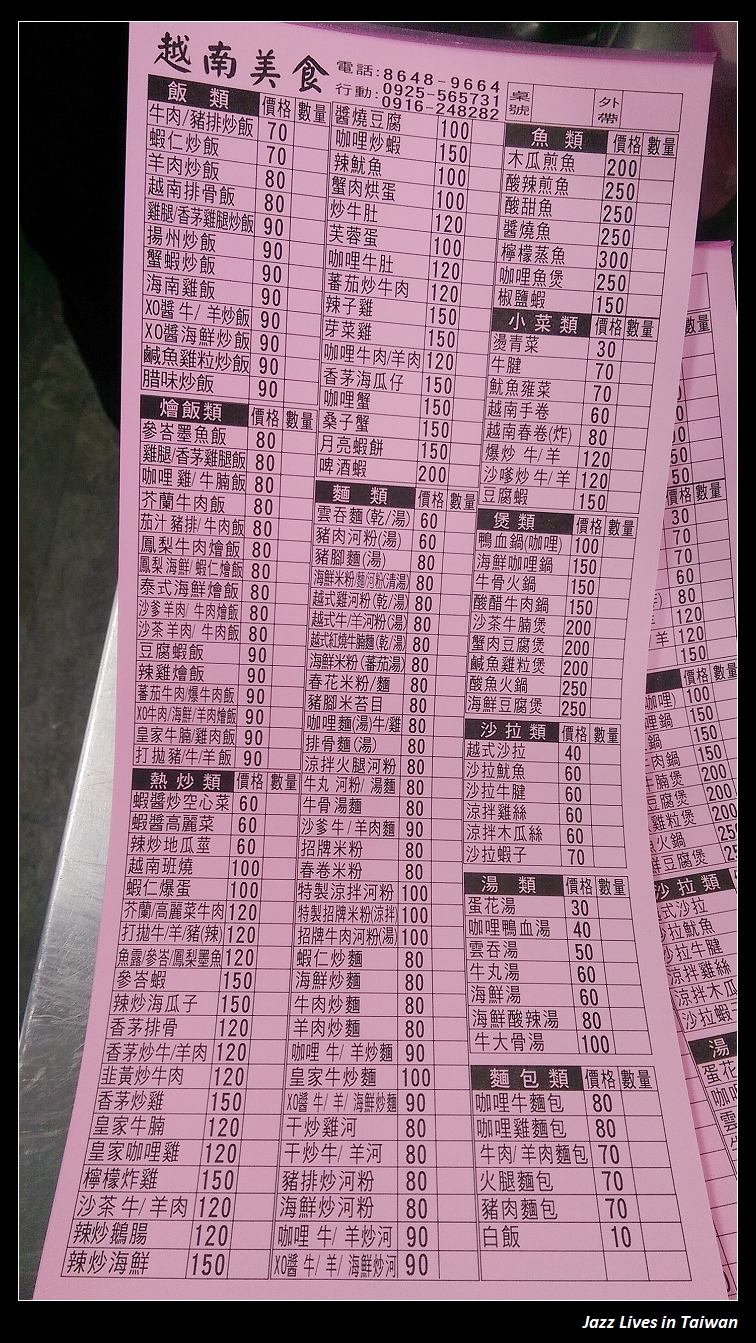 越南美食
電話:8648-9664
行動:0925-565731
0916-248282
桌號
外帶
飯 類 價格 數量
牛肉/豬排炒飯 70
蝦仁炒飯 70
羊肉炒飯 80
越南排骨飯 80
雞腿/香茅雞腿炒飯 90
揚州炒飯 90
蟹蝦炒飯 90
海南雞飯 90
XO醬 牛/ 羊炒飯 90
XO醬海鮮炒飯 90
鹹魚雞粒炒飯 90
腊味炒飯 90
燴飯類 價格 數量
參峇墨魚飯 80
雞腿/香茅雞腿飯 80
咖哩 雞/ 牛腩飯 80
芥蘭牛肉飯 80
茄汁 豬排/ 牛肉飯 80
鳳梨牛肉燴飯 80
鳳梨 海鮮/ 蝦仁燴飯 80
泰式海鮮燴飯 80
沙爹羊肉/ 牛肉燴飯 80
沙茶 羊肉/ 牛肉飯 80
豆腐蝦飯 90
辣雞燴飯 90
蕃茄牛肉/爆牛肉飯 90
XO牛肉/海鮮/羊肉燴飯 90
皇家牛腩/雞肉飯 90
打拋豬/牛/羊飯 90
熱炒類 價格 數量
蝦醬炒空心菜 60
蝦醬高麗菜 60
辣炒地瓜葉 60
越南班燒 100
蝦仁爆蛋 100
芥蘭/高麗菜牛肉 120
打拋牛/羊/豬(辣) 120
魚露/參峇/鳳梨墨魚 120
參峇蝦 150
辣炒海瓜子 150
香茅排骨 120
香茅炒牛/羊肉 120
韭黃炒牛肉 120
香茅炒雞 150
皇家牛腩 120
皇家咖哩雞 120
檸檬炸雞 150
沙茶 牛/ 羊肉 120
辣炒鵝腸 120
辣炒海鮮 150
醬燒豆腐 100
咖哩炒蝦 150
辣魷魚 100
蟹肉烘蛋 100
炒牛肚 120
芙蓉蛋 100
咖哩牛肚 120
蕃茄炒牛肉 120
辣子雞 150
芽菜雞 150
咖哩牛肉/羊肉 120
香茅海瓜仔 150
咖哩蟹 150
桑子蟹 150
月亮蝦餅 150
啤酒蝦 200
麵 類 價格 數量
雲吞麵(乾/湯) 60
豬肉河粉(湯) 60
豬腳麵(湯) 80
海鮮米粉/麵/河粉(清湯) 80
越式雞河粉(乾/湯) 80
越式牛/羊河粉(湯) 80
越式紅燒牛腩麵(乾/湯) 80
海鮮米粉(蕃茄湯) 80
春花米粉/麵 80
豬腳米苔目 80
咖哩麵(湯)牛/雞 80
排骨麵(湯) 80
涼拌火腿河粉 80
牛丸 河粉/ 湯麵 80
牛骨湯麵 80
沙爹牛/羊肉麵 90
招牌米粉 80
春卷米粉 80
特製涼拌河粉 100
特製招牌米粉(涼拌) 100
招牌牛肉河粉(湯) 100
蝦仁炒麵 80
海鮮炒麵 80
牛肉炒麵 80
羊肉炒麵 80
咖哩 牛/ 羊炒麵 90
皇家牛炒麵 100
XO醬 牛/ 羊/ 海鮮炒麵 90
干炒雞河 80
干炒牛/ 羊河 80
豬排炒河粉 80
海鮮炒河粉 80
咖哩 牛/ 羊炒河 90
XO醬 牛/ 羊/ 海鮮炒河 90
魚 類 價格 數量
木瓜煎魚 200
酸辣煎魚 250
酸甜魚 250
醬燒魚 250
檸檬蒸魚 300
咖哩魚煲 250
椒鹽蝦 150
小菜類 價格 數量
燙青菜 30
牛腱 70
魷魚蕹菜 70
越南手卷 60
越南春卷(炸) 80
爆炒 牛/ 羊 120
沙嗲炒 牛/ 羊 120
豆腐蝦 150
煲 類 價格 數量
鴨血鍋(咖哩) 100
海鮮咖哩鍋 150
牛骨火鍋 150
酸醋牛肉鍋 150
沙茶牛腩煲 200
蟹肉豆腐煲 200
鹹魚雞粒煲 200
酸魚火鍋 250
海鮮豆腐煲 250
沙拉類 價格 數量
越式沙拉 40
沙拉魷魚 60
沙拉牛腱 60
涼拌雞絲 60
涼拌木瓜絲 60
沙拉蝦子 70
湯 類 價格 數量
蛋花湯 30
咖哩鴨血湯 40
雲吞湯 50
牛丸湯 60
海鮮湯 60
海鮮酸辣湯 80
牛大骨湯 100
麵包類 價格 數量
咖哩牛麵包 80
咖哩雞麵包 80
牛肉/ 羊肉麵包 70
火腿麵包 70
豬肉麵包 70
白飯 10
Jazz Lives in Taiwan